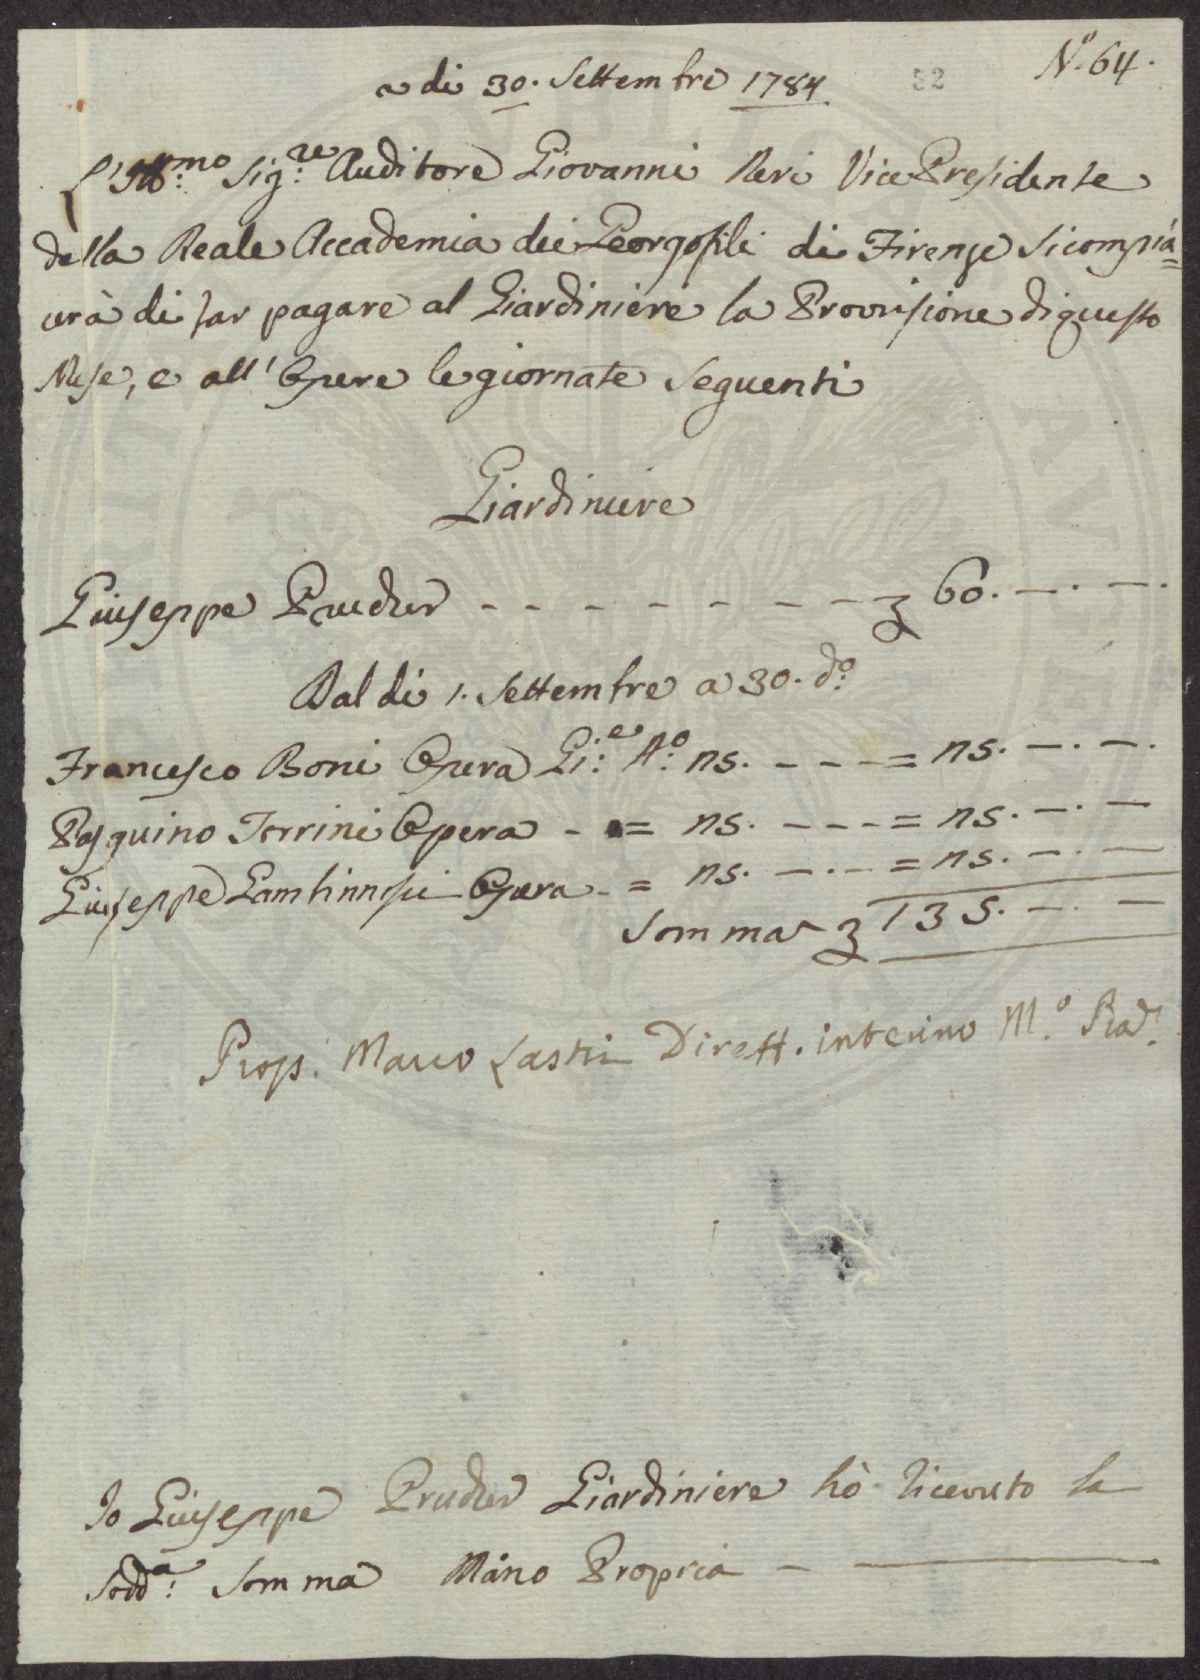 N.o 64.
52
a di 30. Settembre 1784
L'Ill:mo Sig:re Auditore Giovanni Neri Vice Presidente
della Reale Accademia dei Georgofili di Firenze si compia=
cerà di far pagare al Giardiniere la Provvisione di questo
Mese, e all'Opere le giornate Seguenti
Giardiniere
Giuseppe Prucher - - - - - - - - 60. —. —.
Dal di 1. Settembre a 30. d:o
Francesco Boni Opera Gi:e N:o 25. - - - = 25. —. —.
Pasquino Torrini Opera - = 25. - - - = 25. —. —
Giuseppe Opera - = 25. —.— = 25. —. —
Somma 135. —. —
Prop. Marco Lastri Dirett. interino M.o
Io Giuseppe Prucher Giardiniere hò ricevuto la
Sodd:a Somma Mano Propria — ———